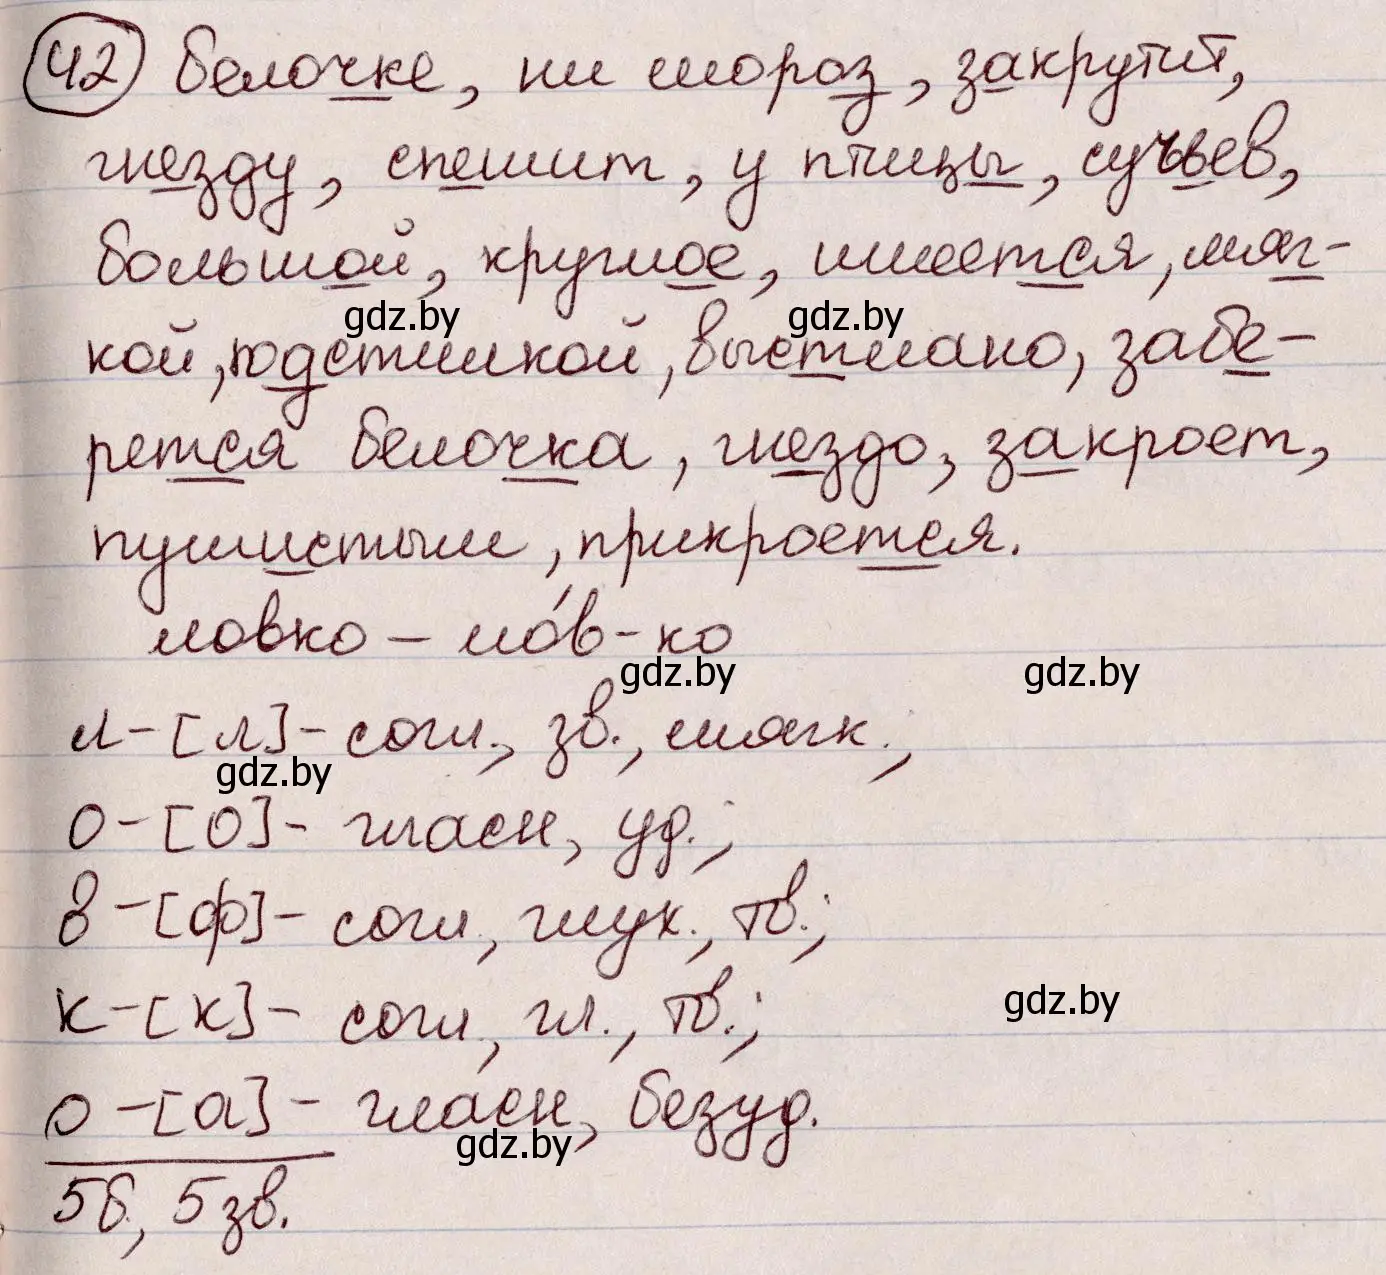 42 белочке, ни мороз, закрутит,
гнезду, спешит, у птицы, сучьев,
большой, круглое, имеется, мяг-
gdz.by gdz.by
кой, подстилкой, выстлано, забе-
рется белочка, гнездо, закроет,
пушистым, прикроется.
ловко – ло́в-ко
gdz.by gdz.by
л-[л]- согл., зв., мягк.;
gdz.by
о-[о]- гласн, уд.;
в-[ф]- согл., глух., тв.;
к-[к]- согл, гл., тв.;
gdz.by
о-[а]- гласн, безуд.
gdz.by
5б, 5зв.